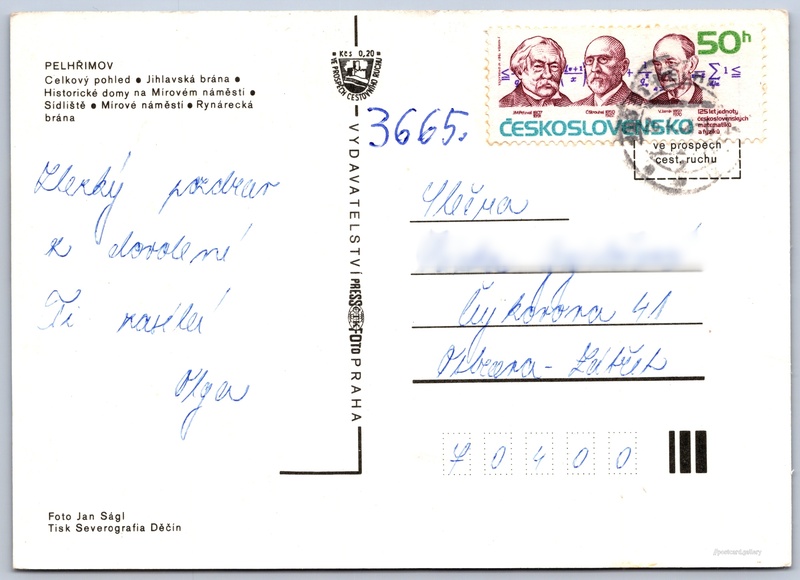 PELHŘIMOV
Celkový pohled ● Jihlavská brána ●
Historické domy na Mírovém náměstí ●
Sídliště ● Mírové náměstí ● Rynárecká
brána
Hezký pozdrav
z dovolené
Ti zasílá
Olga
Foto Jan Ságl
Tisk Severografia Děčín
Kčs 0,20
VE PROSPĚCH CESTOVNÍHO RUCHU
VYDAVATELSTVÍ PRESSFOTO PRAHA
3665.
50h
ČESKOSLOVENSKO
125 let jednoty
československých
matematiků
a fyziků
ve prospěch
cest. ruchu
Slečna
41
Ostrava - Zábřeh
70400
//postcard.gallery